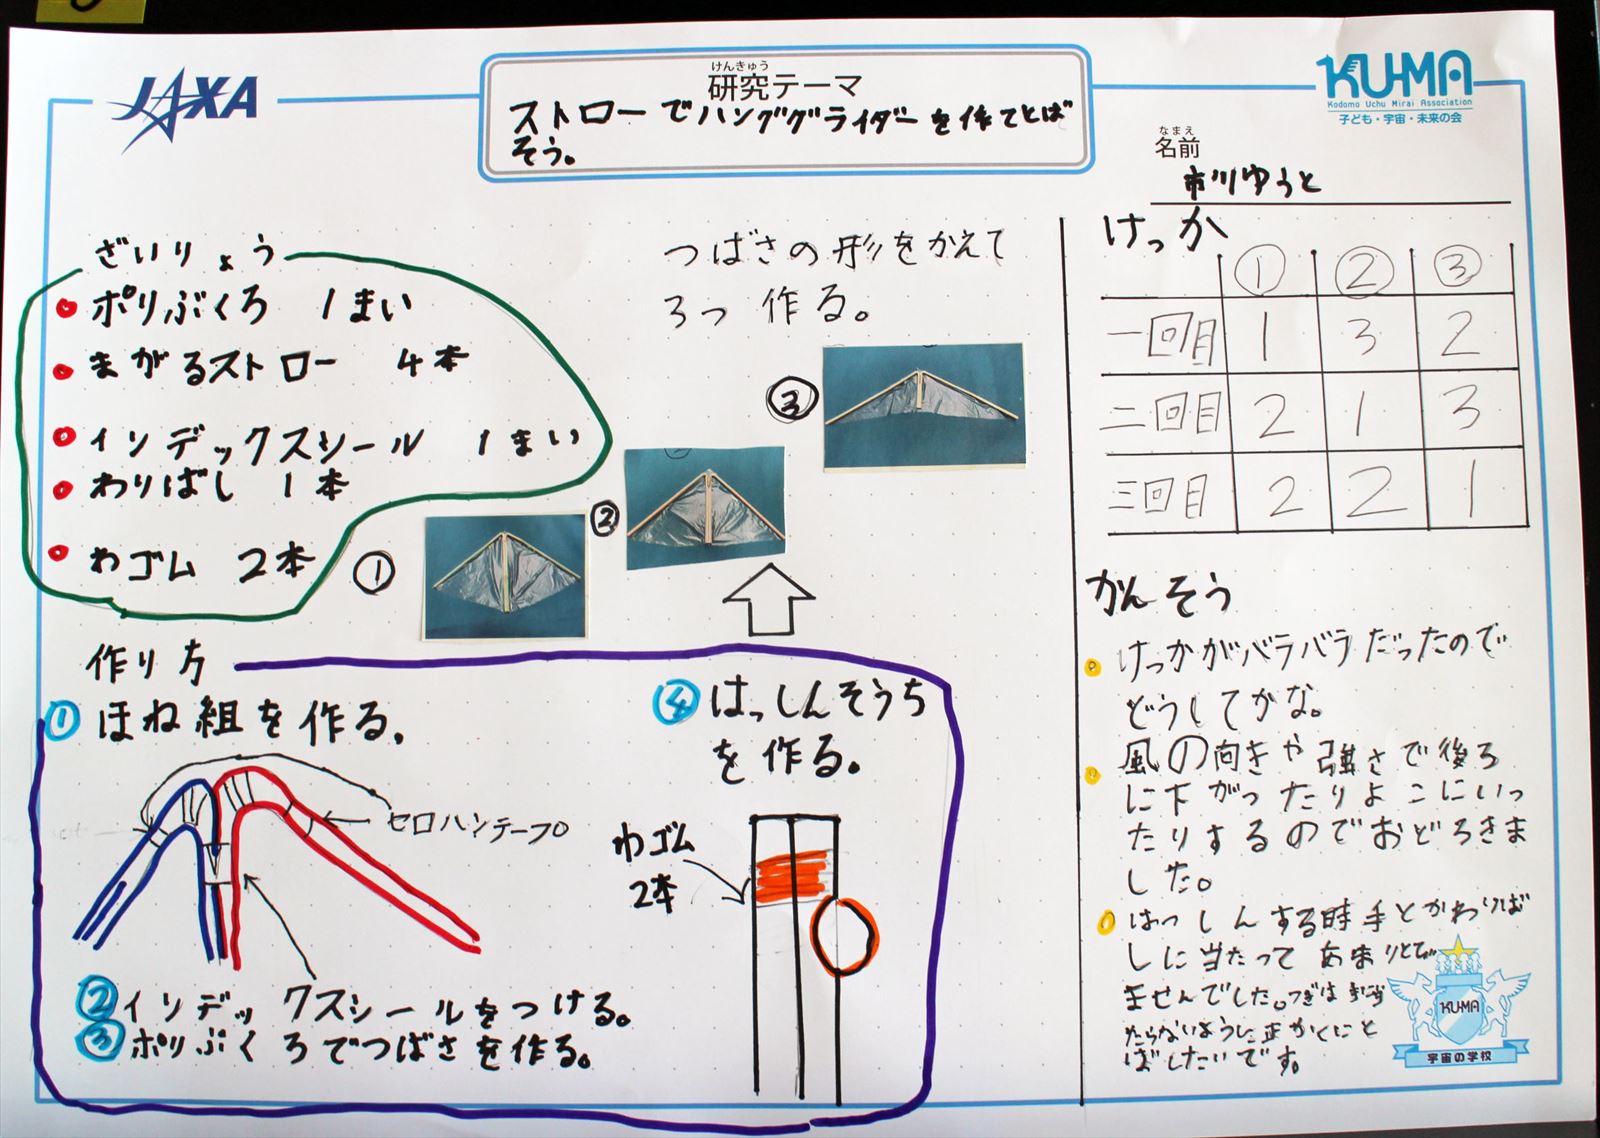 JAXA
けんきゅう
研究テーマ
ストローでハンググライダーを作てとば
そう。
KU-MA
Kodomo Uchu Mirai Association
子ども・宇宙・未来の会
なまえ
名前
市川ゆうと
ざいりょう
ポリぶくろ 1まい
まがるストロー 4本
インデックスシール 1まい
わりばし 1本
わゴム 2本
つばさの形をかえて
3つ 作る。
①
②
③
作り方
①ほね組を作る。
セロハンテープ
②インデックスシールをつける。
③ポリぶくろでつばさを作る。
④はっしんそうち
を作る。
わゴム
2本
けっか
① ② ③
一回目 1 3 2
二回目 2 1 3
三回目 2 2 1
かんそう
けっかがバラバラだったので
どうしてかな。
風の向きや強さで後ろ
に下がったりよこにいっ
たりするのでおどろきま
した。
はっしんする時手とかわりば
しに当たって あまりとび
ませんでした。つぎは
たらないように正かくにと
ばしたいです。
KU-MA
宇宙の学校